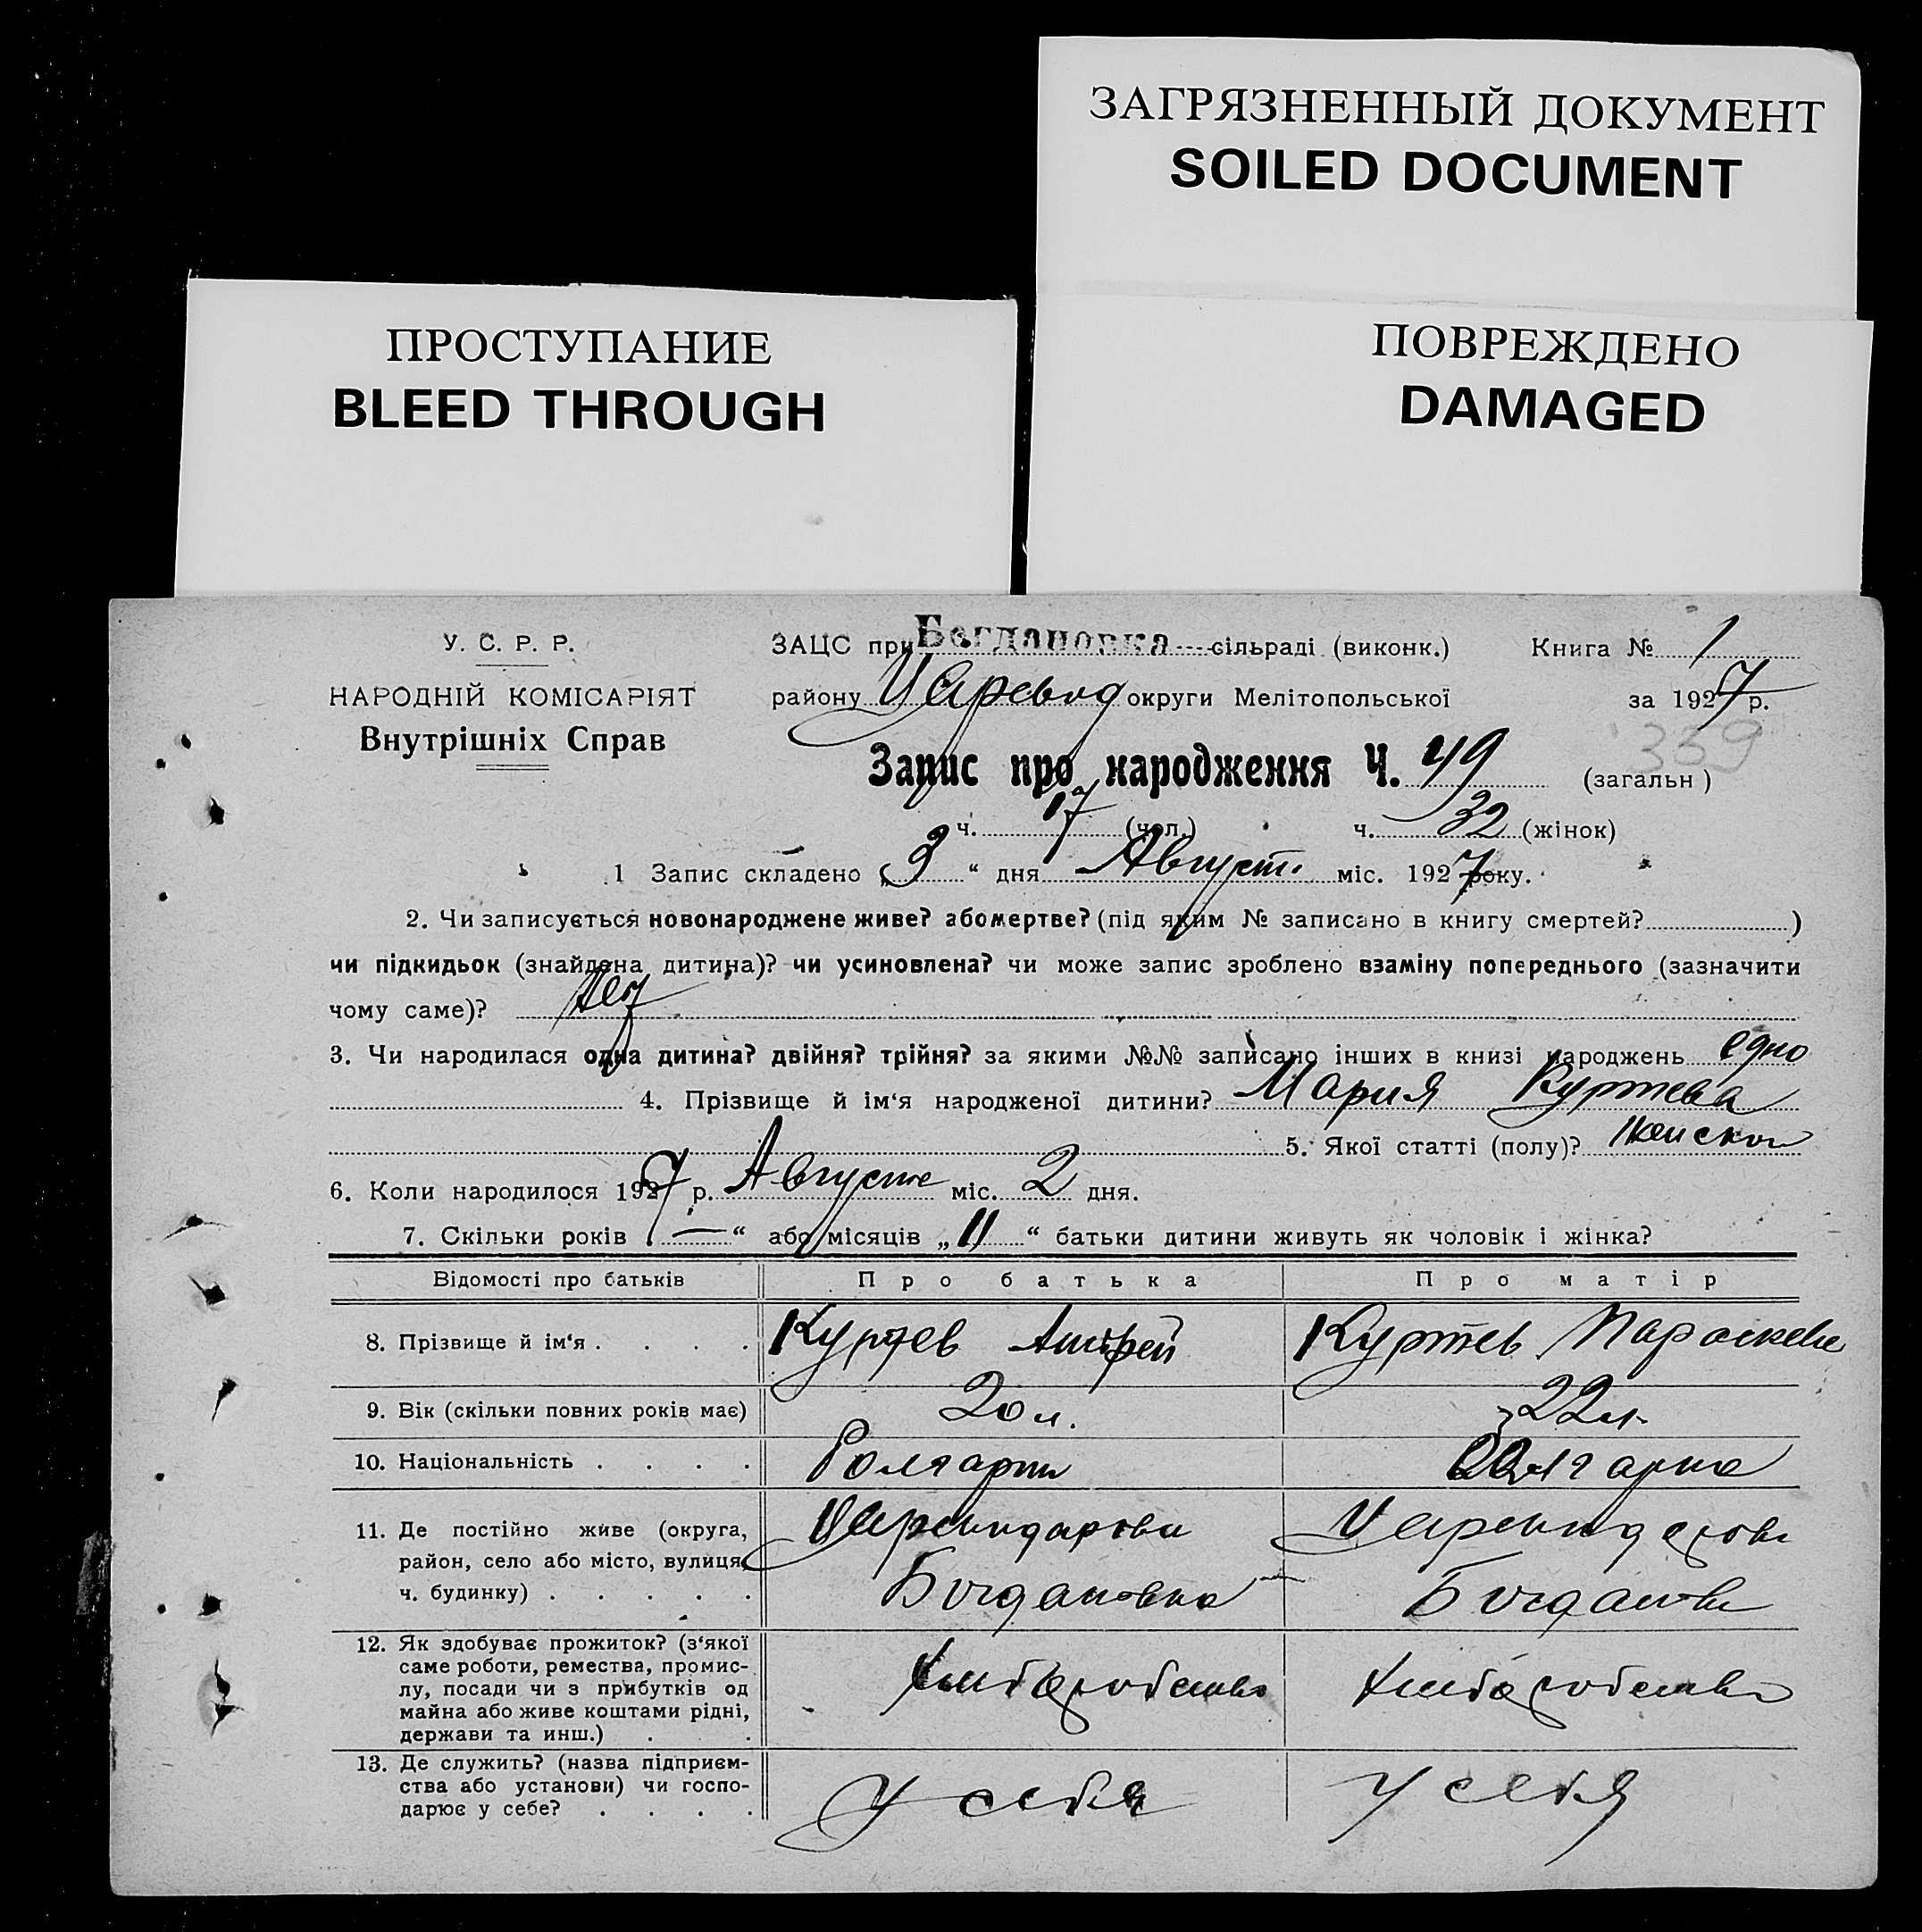 ЗАГРЯЗНЕННЫЙ ДОКУМЕНТ
SOILED DOCUMENT
ПРОСТУПАНИЕ
BLEED THROUGH
ПОВРЕЖДЕНО
DAMAGED
У. С. Р. Р.
НАРОДНІЙ КОМІСАРІЯТ
Внутрішніх Справ
ЗАЦС при Богдановка сільраді (виконк.) Книга № 1
району Царевод округи Мелітопольської за 1927 р.
359
Запис про народження Ч. 49 (загальн)
ч. 17 (чол.) ч. 32 (жінок)
1 Запис складено „3“ дня Август міс. 1927 року.
2. Чи записується новонароджене живе? або мертве? (під яким № записано в книгу смертей? )
чи підкидьок (знайдена дитина)? чи усиновлена? чи може запис зроблено взаміну попереднього (зазначити
чому саме)?
3. Чи народилася одна дитина? двійня? трійня? за якими №№ записано інших в книзі народжень едно
4. Прізвище й ім‘я народженої дитини? Мария Куртева
5. Якої статті (полу)? женской
6. Коли народилося 1927 р. Августе міс. 2 дня.
7. Скільки років „—“ або місяців „11“ батьки дитини живуть як чоловік і жінка?
Відомості про батьків Про батька Про матір
8. Прізвище й ім‘я . . . . Куртев Андрей Куртев Параскева
9. Вік (скільки повних років має) 20 л. 22 л.
10. Національність . . . . Болгарин Болгарка
11. Де постійно живе (округа,
район, село або місто, вулиця,
ч. будинку) . . . . .
Богдановка
12. Як здобуває прожиток? (з‘якої
саме роботи, ремества, промис-
лу, посади чи з прибутків од
майна або живе коштами рідні,
держави та инш.) . .
Хлеборобство Хлеборобство
13. Де служить? (назва підприєм-
ства або установи) чи госпо-
дарює у себе? . . . .
У себя У себя